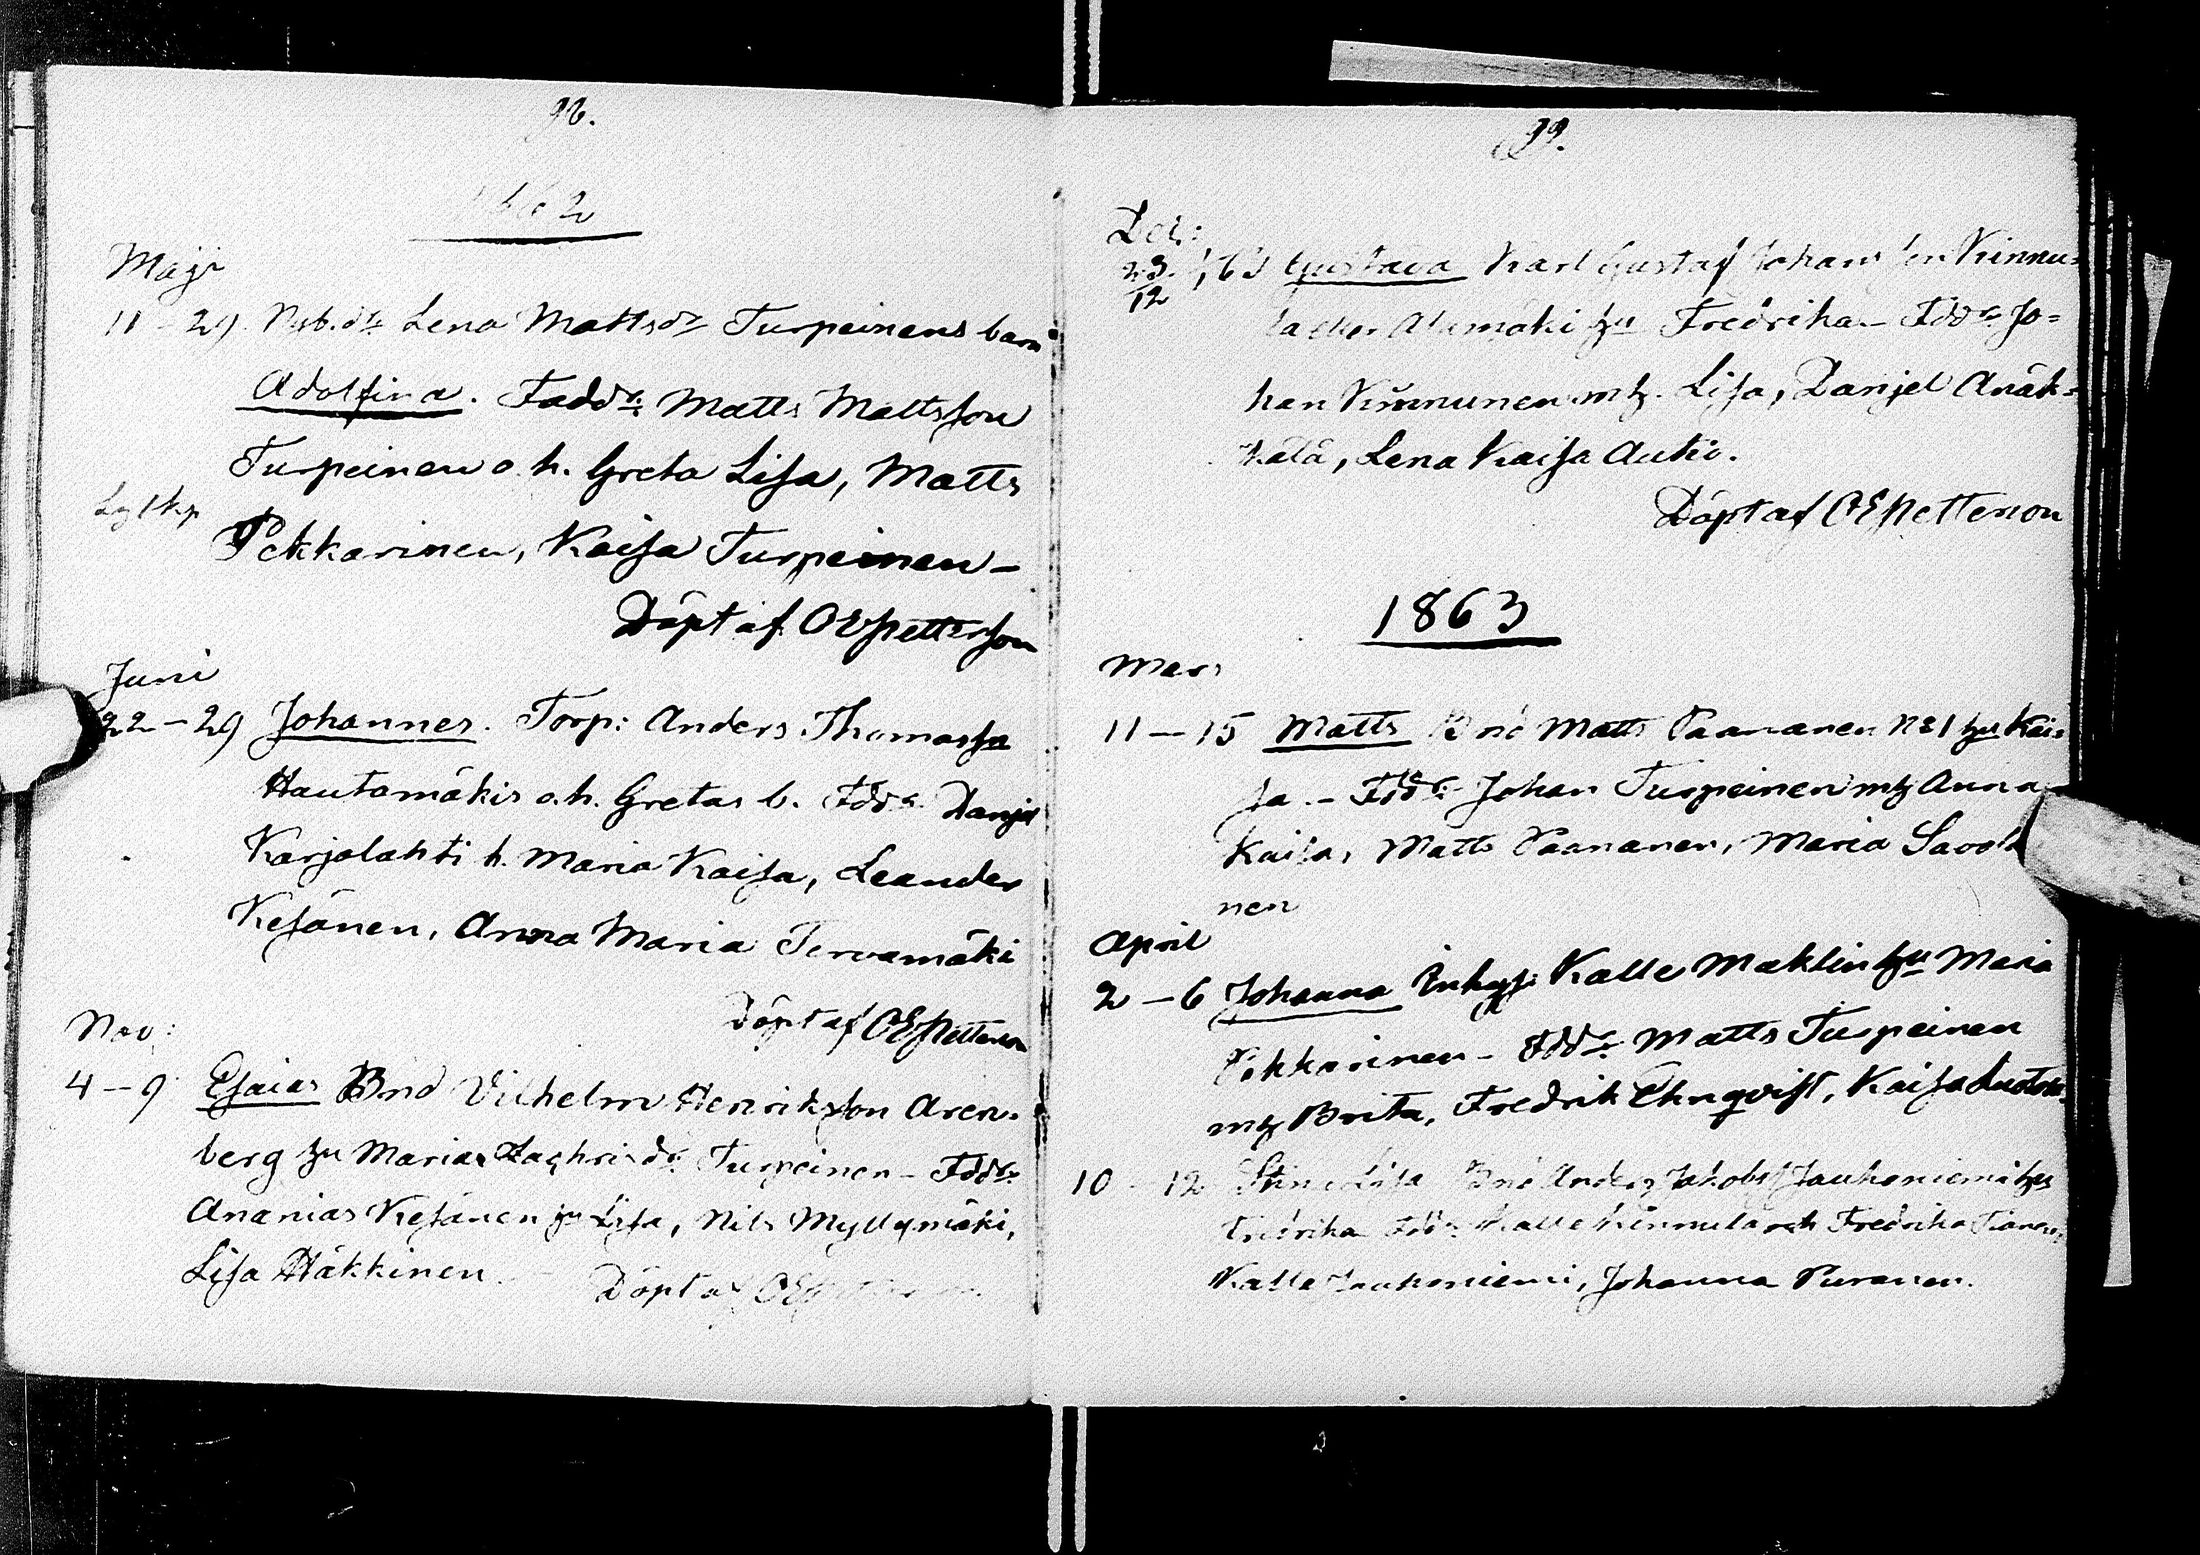 98.
1862
Maji
11 – 29. Lena Mattsdr Turpeinens barn
Adolfina. Faddr: Matts Mattsson
Turpeinen o. h. Greta Lisa, Matts
Pekkarinen, Kaisa Turpeinen –
Döpt af OEPettersson
Juni
22 – 29 Johannes. Torp: Anders Thomass
Hautamäkis o. h. Gretas b. Fddr: Danjel
Karjalahti h. Maria Kaisa, Leander
Kesänen, Anna Maria Tervamäki
Döpt af OEPettersson
Nov:
4 – 9 Esaias Bnd Vilhelm Henriksson Aren-
berg hu Maria Zachrisdr Turpeinen – Fddr:
Ananias Kesänen hu Lisa, Nils Myllymäki,
Lisa Häkkinen
Döpt af
99.
Dec:
23/12 Gustava Karl Gustaf Johansson Kinnu-
Alamäki hu Fredrika – Fddr: Jo=
han Kinnunen m h. Lisa, Danjel
Lena Kaisa Autio.
Döpt af OEPetterson
1863
Mars
11 – 15 Matts Bnd Matts Paananen N:1 hu Kai-
sa. – Fddr: Johan Turpeinen m h Anna
Kaisa, Matts Paananen, Maria Savolai
nen
April
2 – 6 Johanna Inhys: Kalle Maklin hu Maria
Pekkarinen – Fddr: Matts Turpeinen
m h Brita, Fredrik Ehnqvist, Kaisa
10 – 12 Stina Lisa Bnd Anders Jakobs Jaukoniemi hu
Fredrika Fddr: Kalle Kinnula och Fredrika
Kalle Jaukoniemi, Johanna Puranen.